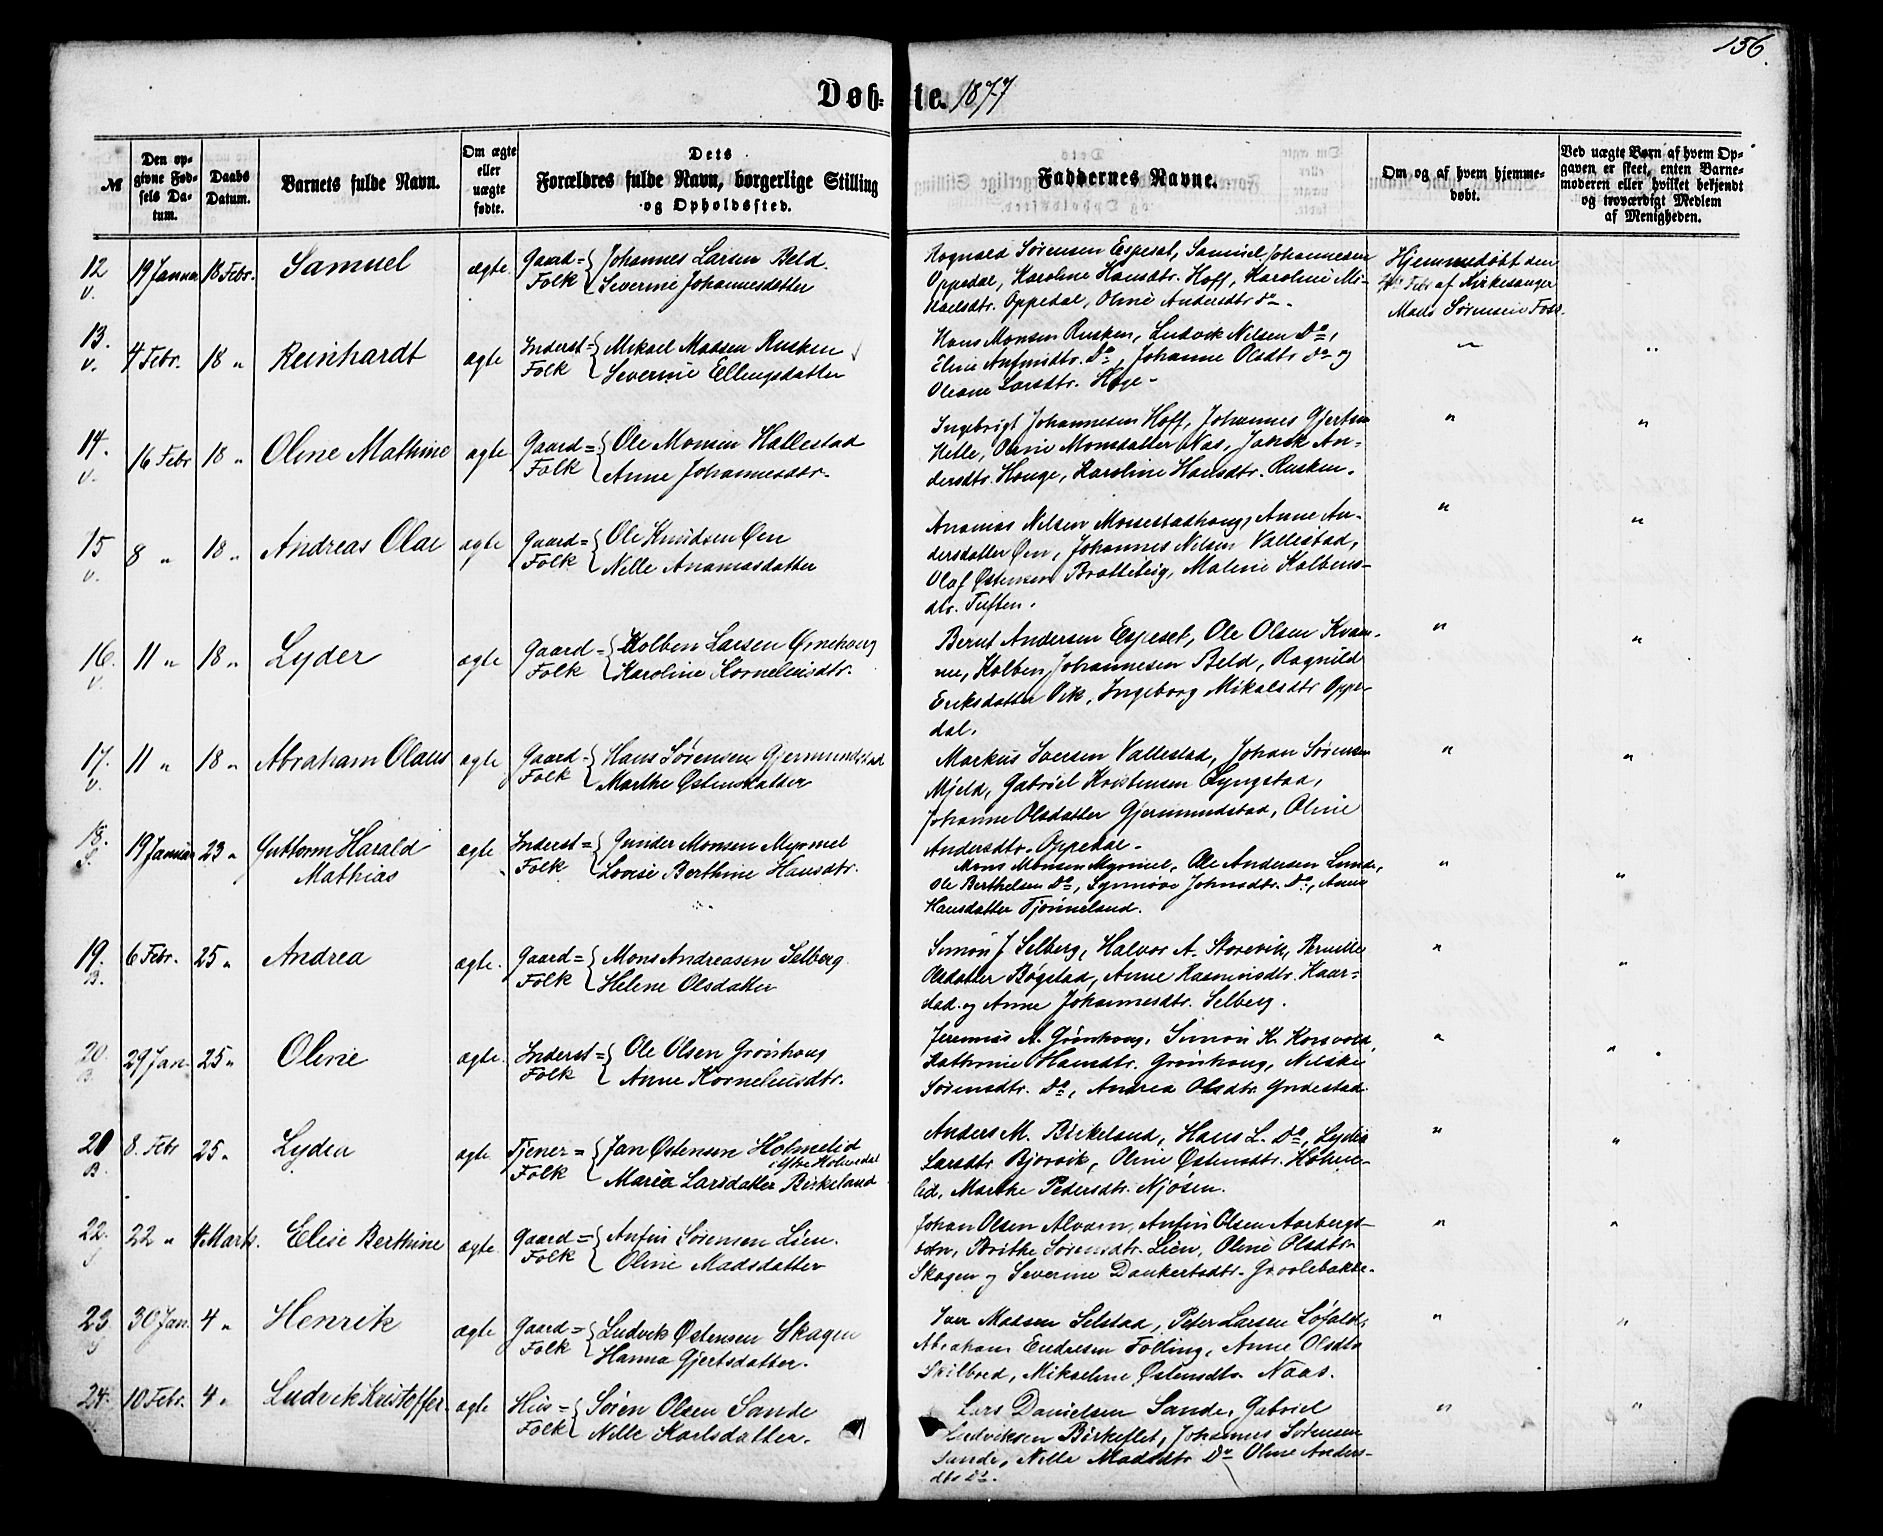 156.
Døb- te. 1877
№
Den opgivne Fødsels Datum.
Daabs Datum.
Barnets fulde Navn.
Om ægte eller uægte fødte.
Dets Forældres fulde Navn, borgerlige Stilling og Opholdssted.
Faddernes Navne.
Om og af hvem hjemmedøbt.
Ved uægte Børn af hvem Opgaven er skeet, enten Barnemoderen eller hvilket bekjendt og troværdigt Medlem af Menigheden.
12 v. 19 Januar 18 Febr. Samuel ægte. Gaard= Folk { Johannes Larsen Beld.
Severine Johannesdatter
Rognald Sørensen Espeset, Samuel Johannesen
Oppedal, Karoline Hansdtr. Hoff, Karoline Mi-
kaelsdtr. Oppedal, Oline Andersdtr do.
Hjemmedøbt den
Febr af Kirkesanger
Mads Sørensen Foss.
13. v. 4 Febr. 18 " Reinhardt ægte Inderst= Folk { Mikael Madsen Rusken
Severine Ellingsdatter
Hans Monsen Rusken, Ludvik Nilsen Do,
Eline Anfinsdtr. Do, Johanne Olsdtr Do og
Oleane Larsdtr. Høge.
" "
14. v. 16 Febr 18 " Oline Mathine ægte Gaard= Folk { Ole Monsen Hallestad
Anne Johannesdtr.
Ingebrigt Johannesen Hoff, Johannes Gjertsen
Helle, Oline Monsdatter Nas, An-
dersdtr. Houge, Karoline Hansdtr. Rusken.
" "
15 v. 8 " 18 " Andreas Olai ægte Gaard= Folk { Ole Knudsen Øen
Nille Ananiasdatter
Ananias Nilsen Anne An-
dersdatter Øen, Johannes Nilsen Vallestad,
Olaf Østensen Brattebeig, Malene Kolbens-
dtr. Tuften.
" "
16. v. 11 " 18 " Lyder ægte Gaard= Folk { Kolben Larsen Ørnehaug
Karoline Korneliusdtr.
Bernt Andersen Espeset, Ole Olsen Kvam-
me, Kolben Johannesen Beld, Ragnild
Eriksdatter Vik, Ingeborg Mikalsdtr Oppe-
dal.
" "
17. v. 11 " 18 " Abraham Olaus ægte Gaard= Folk { Hans Sørensen Gjermundstad
Marthe Østensdatter
Markus Iversen Vallestad, Johan Sørensen
Mjeld, Gabriel Kristensen Lyngstad,
Johanne Olsdatter Gjermundstad, Oline
Andersdtr. Oppedal.
" "
18. 19 Januar 23 " Guttorm Harald Mathias ægte Inderst= Folk { Gunder Monsen Myrmel
Lovise Berthine Hansdtr.
Mons Monsen Myrmel, Ole Andersen Lunde,
Ole Berthelsen Do, Synnøve Johnsdtr. Do, Anne
Hansdatter Tjønneland.
" "
19. B. 6 Febr. 25 " Andrea ægte. Gaard= Folk { Mons Andreasen Selberg
Helene Olsdatter
Simon J Selberg, Halvor A. Storevik, Pernille
Olsdatter Bøgstad, Anne Rasmusdtr. Haar-
stad og Anne Johannesdtr. Selberg.
" "
20. B 29 Jan. 25 " Oline ægte. Inderst= Folk { Ole Olsen Grønhoug
Anne Korneliusdtr.
Jeremias A. Grønhoug, Simon K. Korsvold,
Kathrine Hansdtr. Grønhoug, Nilsine
Sørensdtr. Do, Andrea Olsdtr. Yndestad.
" "
21 B. 8. Febr 25 " Lydia ægte. Tjener= Folk { Jan Østensen Holmelid
i Ytre Holmedal
Maria Larsdatter Birkeland
Anders M. Birkeland, Hans L. Do, Lydia
Larsdtr Bjorvik, Oline Østensdtr. Holme-
lid, Marthe Pedersdtr. Njøsen.
" "
22. 22 " 4 Marts. Elise Berthine ægte Gaard= Folk { Anfin Sørensen Lien.
Oline Madsdatter
Johan Olsen Alværn, Anfin Olsen Aarbergs-
botn, Brithe Sørensdtr. Lien, Oline Olsdtr
Skagen og Severine Dankertsdtr.
" "
23. 30 Jan. 4 " Henrik ægte Gaard= Folk { Ludvik Østensen Skagen
Hanna Gjertsdatter.
Iver Madsen Selstad, Peter Larsen Løfald,
Abraham Endresen Følling, Anne Olsdtr
Skilbred, Mikaeline Østensdtr. Naas.
" "
24. 10 Febr. 4 " Ludvik Kristoffer. ægte Hus= Folk { Søren Olsen Sande
Nille Karlsdatter.
Lars Danielsen Sande, Gabriel
Ludviksen Birkeflet, Johannes Sørensen
Sande, Nille Madsdtr Do Oline Anders-
dtr Do.
" "